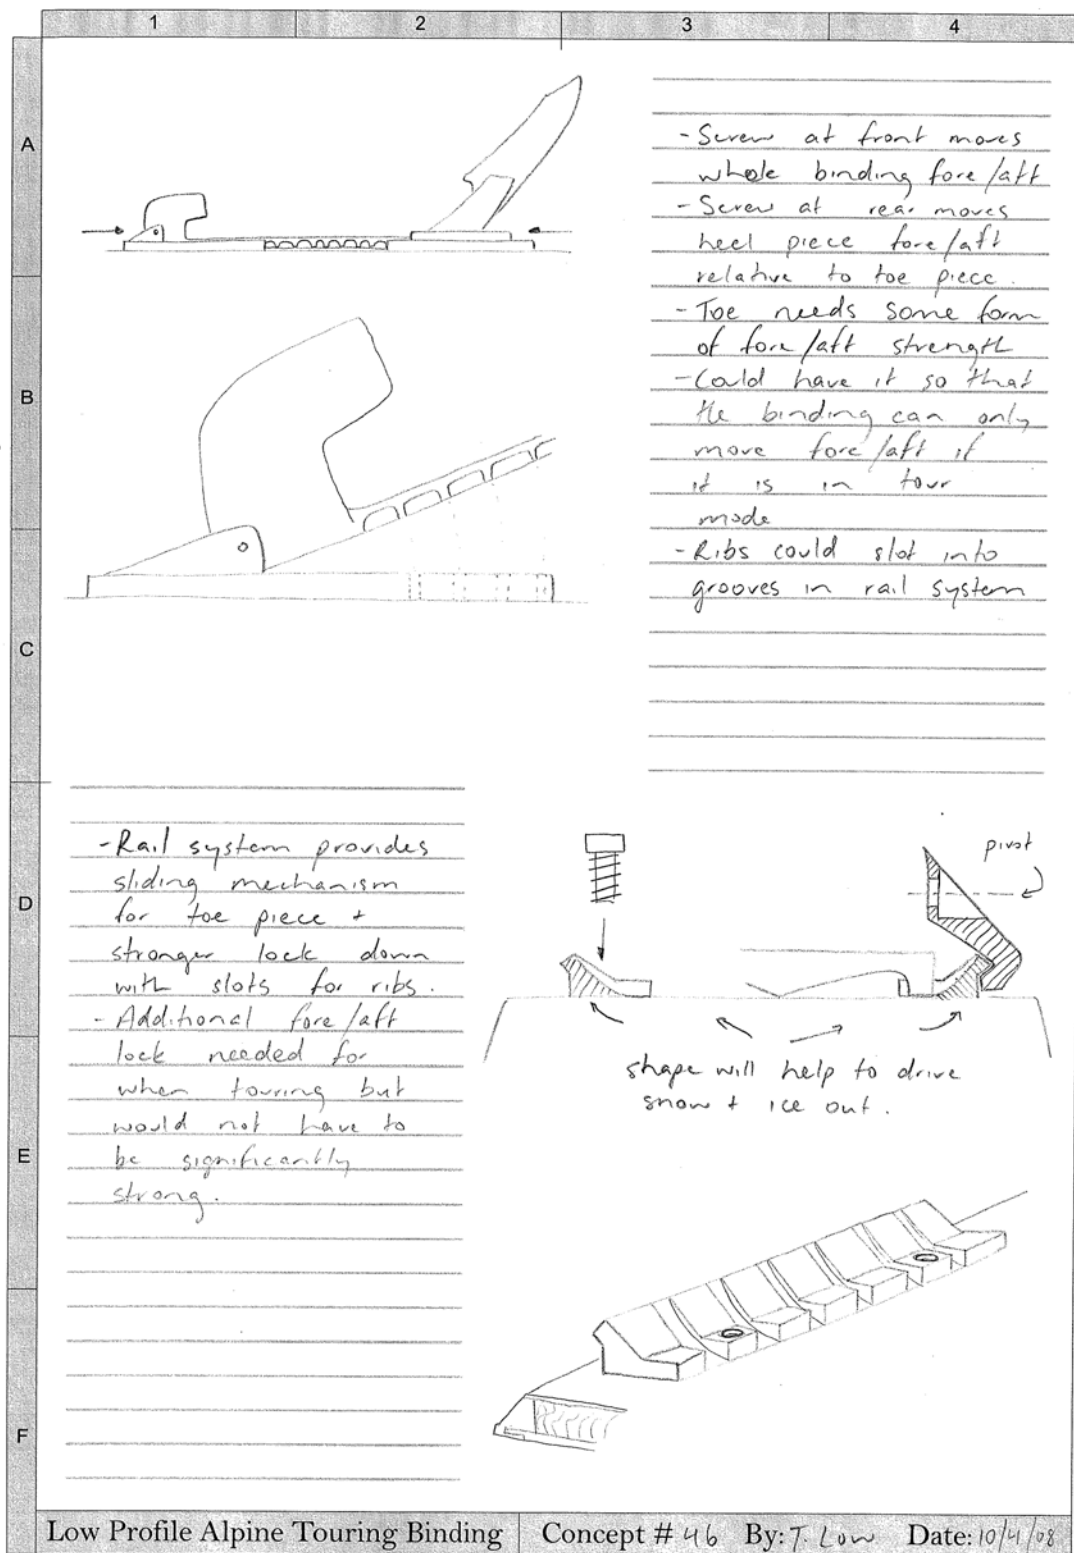 1 2 3 4
A
B
C
D
E
F
- Screw at front moves
whole binding fore/aft
- Screw at rear moves
heel piece fore/aft
relative to toe piece.
- Toe needs some form
of fore/aft strength
- Could have it so that
the binding can only
move fore/aft if
it is in tour
mode
- Ribs could slot into
grooves in rail system
- Rail system provides
sliding mechanism
for toe piece +
stronger lock down
with slots for ribs.
- Additional fore/aft
lock needed for
when touring but
would not have to
be significantly
strong.
pivot
shape will help to drive
snow + ice out.
Low Profile Alpine Touring Binding Concept # 46 By: T. Low Date: 10/4/08